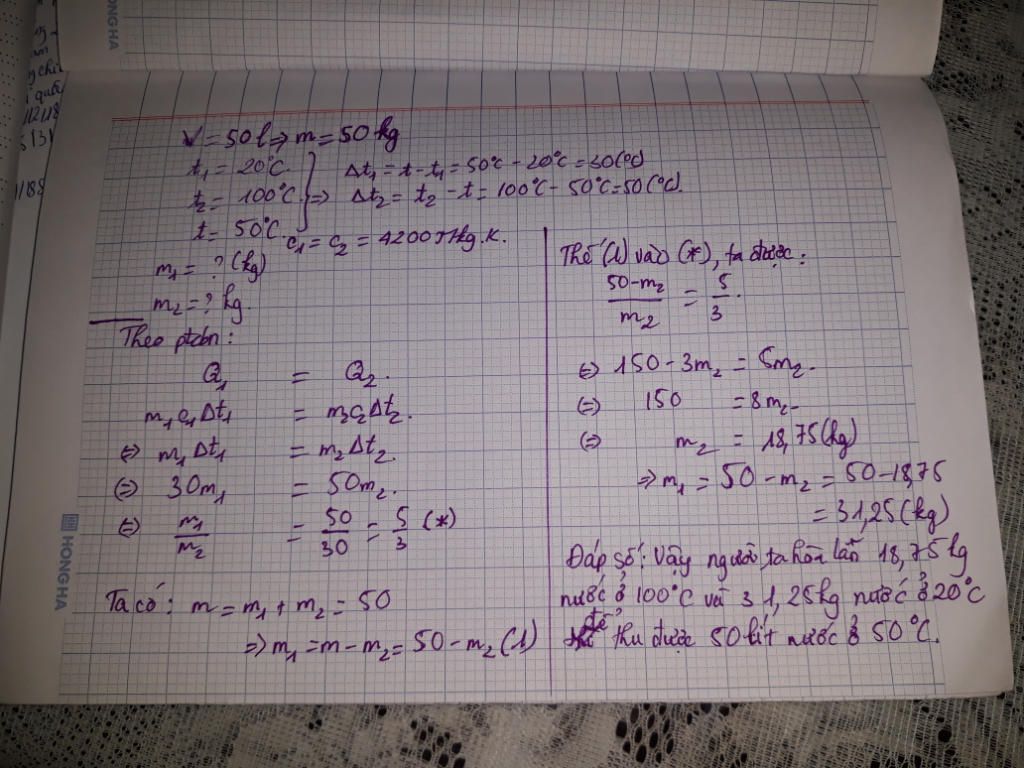 HONG HA
V = 50l => m = 50kg
t₁ = 20°C.
t₂ = 100°C
t = 50°C.
=> Δt₁ = t - t₁ = 50°C - 20°C = 30(°C)
Δt₂ = t₂ - t = 100°C - 50°C = 50(°C).
c₁ = c₂ = 4200J/kg.K.
m₁ = ? (kg)
m₂ = ? kg.
Theo ptcbn:
Q₁ = Q₂.
m₁c₁Δt₁ = m₂c₂Δt₂.
<=> m₁Δt₁ = m₂Δt₂.
<=> 30m₁ = 50m₂.
<=> m₁/m₂ = 50/30 = 5/3 (*)
Ta có: m = m₁ + m₂ = 50
=> m₁ = m - m₂ = 50 - m₂ (1)
Thế (1) vào (*), ta được:
50-m₂/m₂ = 5/3.
<=> 150 - 3m₂ = 5m₂.
<=> 150 = 8m₂.
<=> m₂ = 18,75(kg)
=> m₁ = 50 - m₂ = 50 - 18,75
= 31,25(kg)
Đáp số: Vậy người ta hòa lẫn 18,75kg
nước ở 100°C với 31,25kg nước ở 20°C
để thu được 50 lít nước ở 50°C.
HONG HA